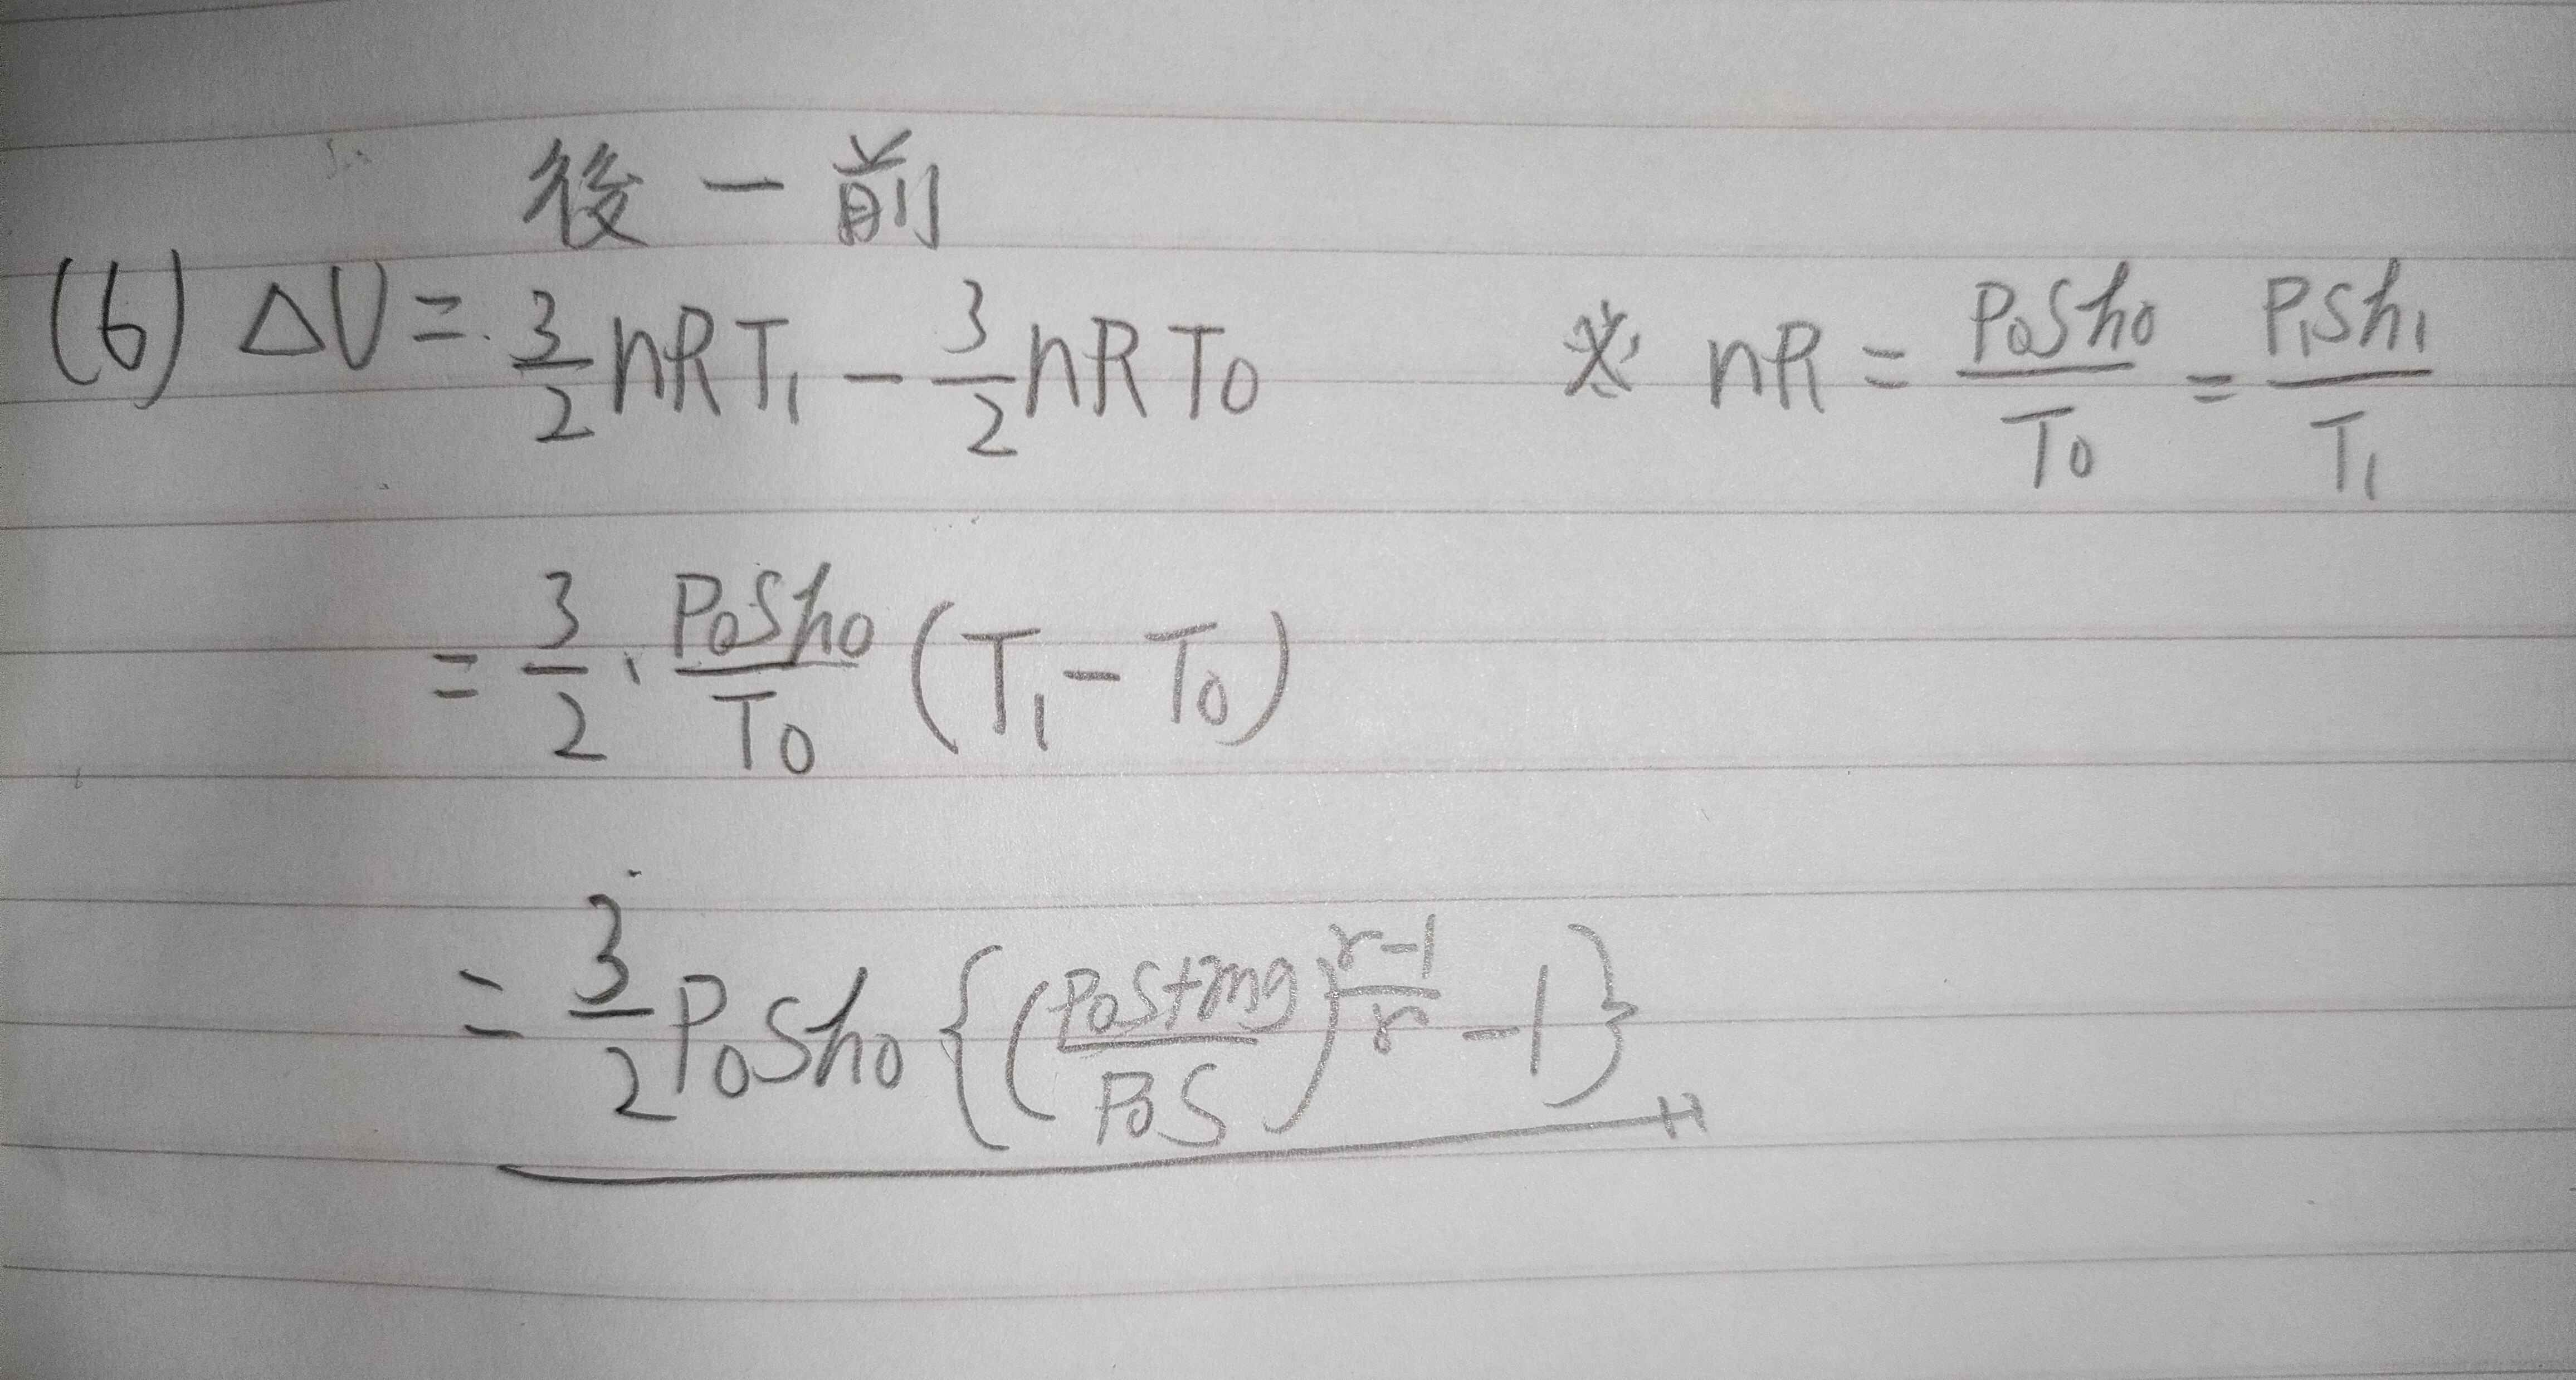 後 - 前
(6) ΔU = 3/2 nRT₁ - 3/2 nRT₀ ※ nR = P₀Sh₀/T₀ = P₁Sh₁/T₁
= 3/2 · P₀Sh₀/T₀ (T₁ - T₀)
= 3/2 P₀Sh₀ { ( (P₀S+mg)/(P₀S) )^((r-1)/r) - 1 }